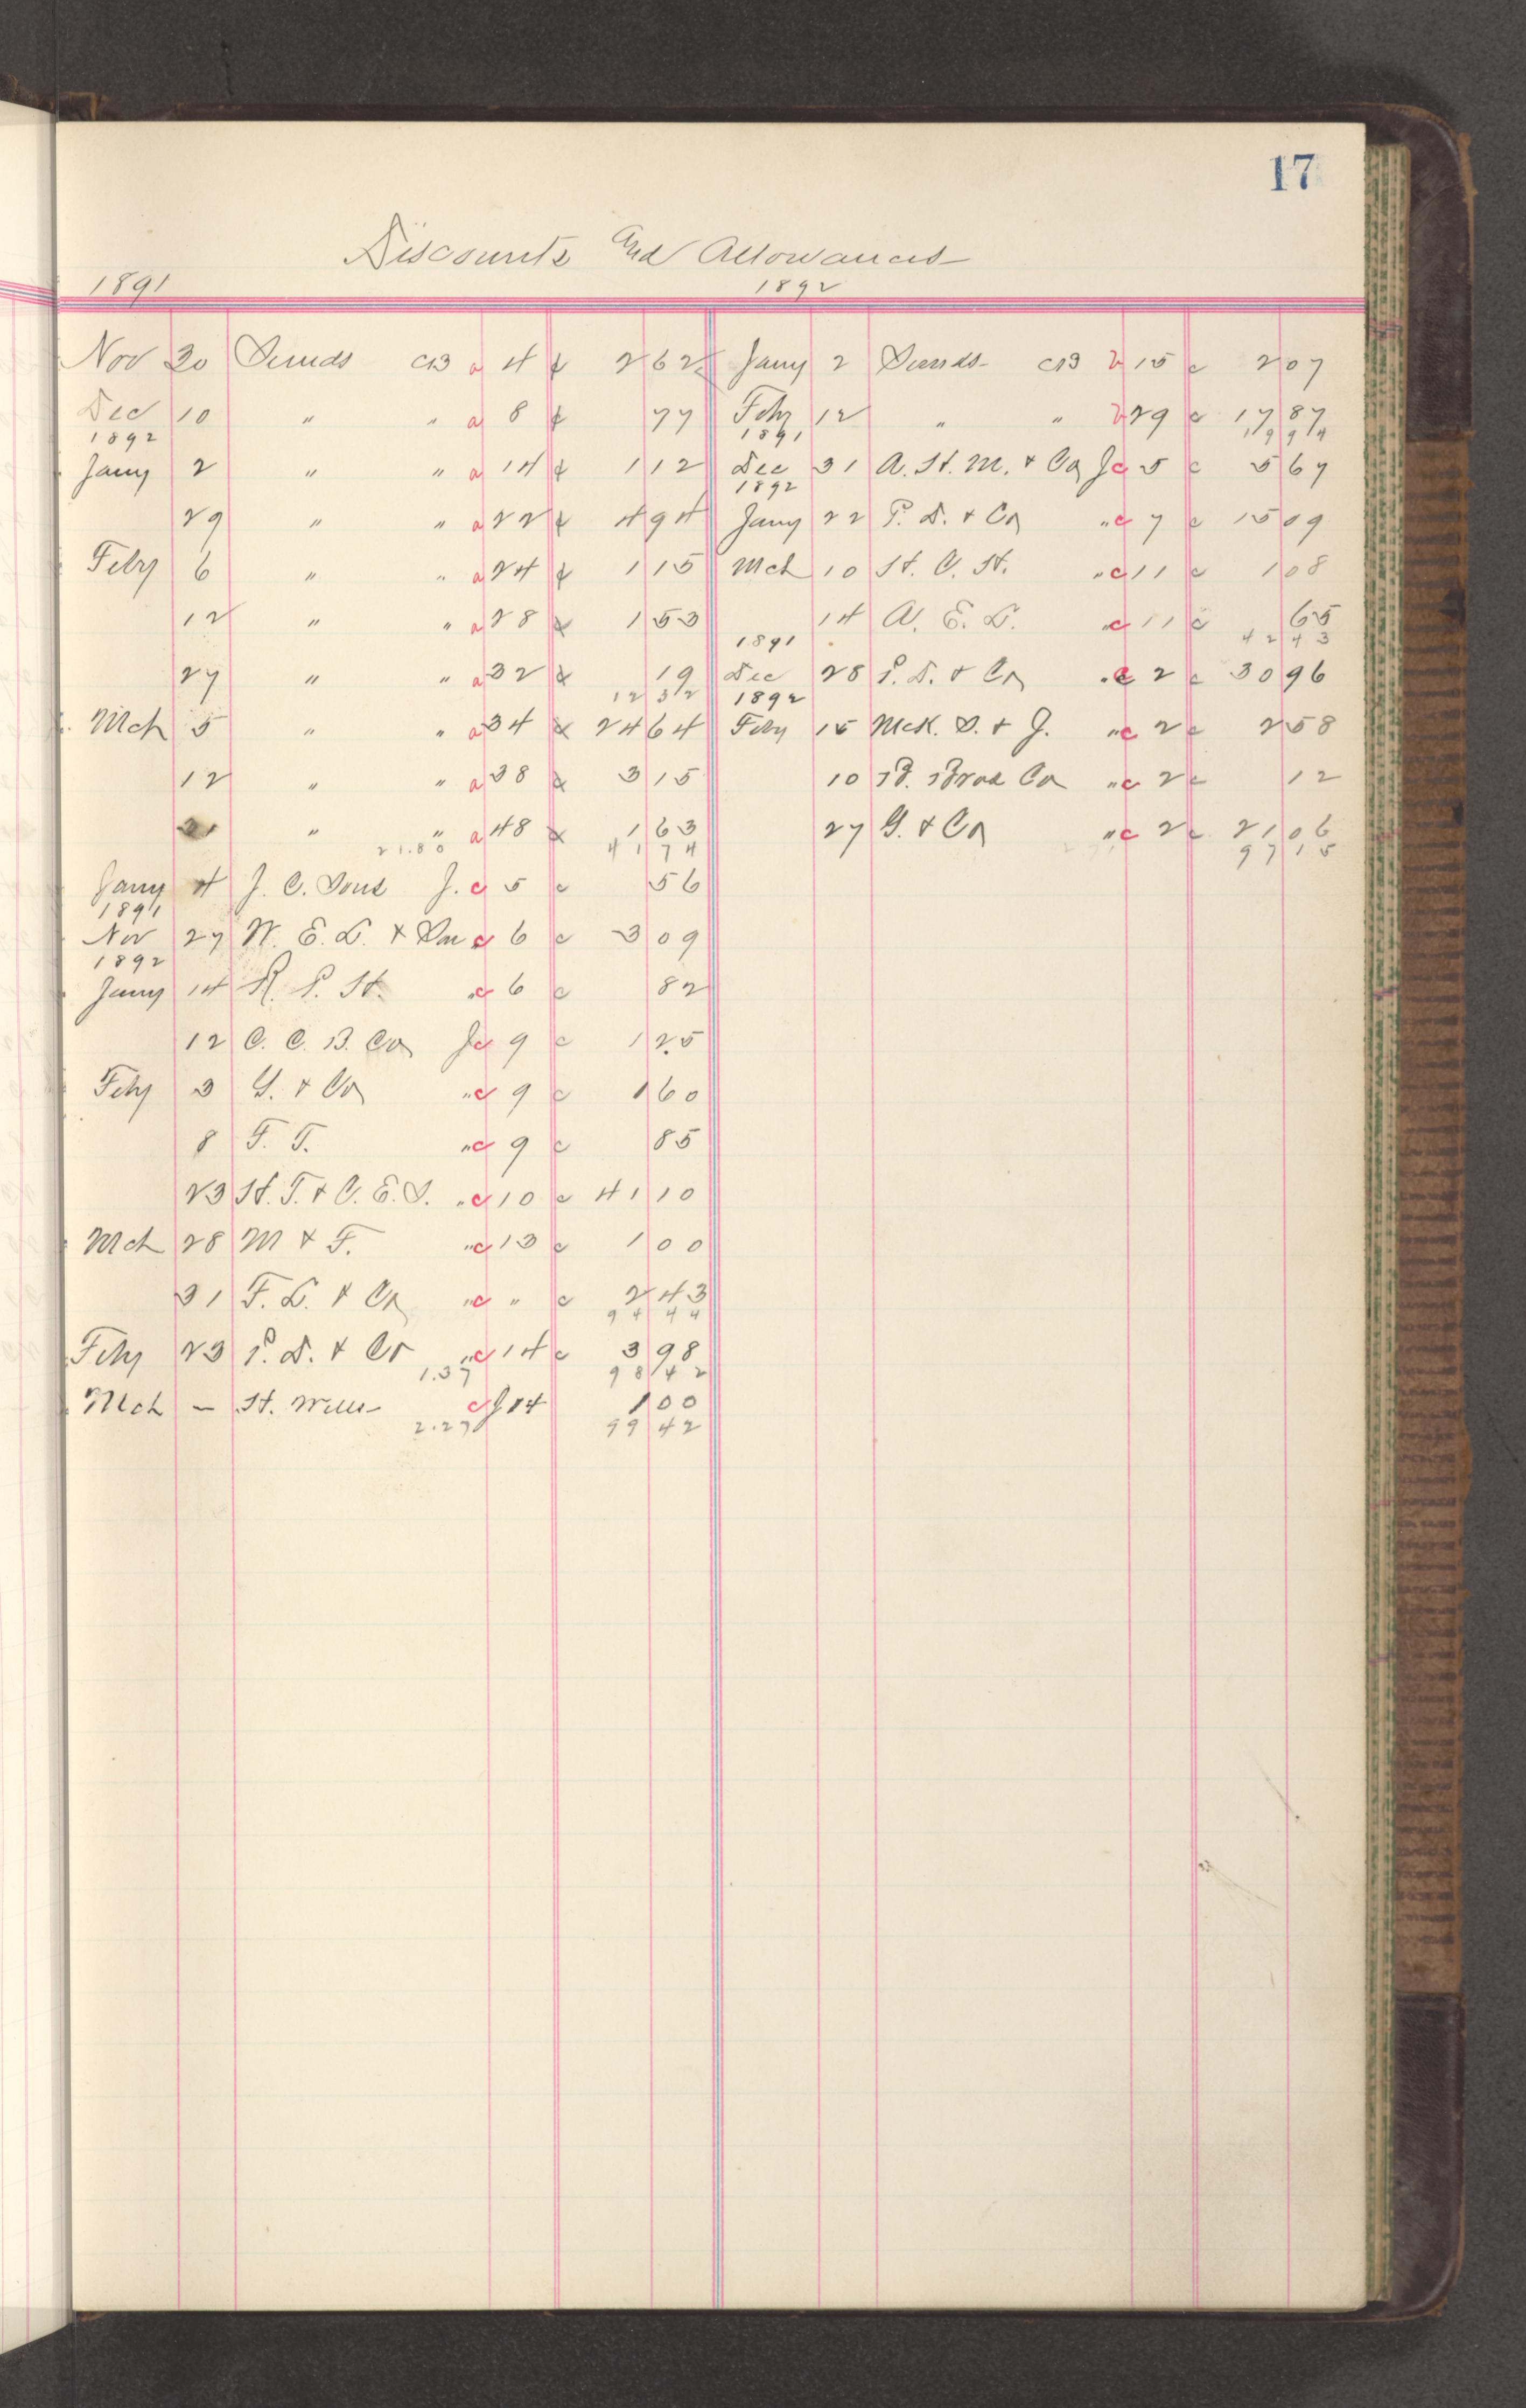 17
Discounts and Allowances
1891
Nov 30 Sunds CB a 4 ¢ 2 62
Dec 10 " " a 8 ¢ 77
1892
Jany 2 " " a 14 ¢ 1 12
29 " " a 22 ¢ 4 94
Feby 6 " " a 24 ¢ 1 15
12 " " a 28 ¢ 1 53
27 " " a 32 ¢ 19
12 32
Mch 5 " " a 34 ¢ 24 64
12 " " a 38 ¢ 3 15
31 " " a 48 ¢ 1 63
21.80 41 74
Jany 4 J. C. Sons J. c 5 c 56
1891
Nov 27 W. E. D. & Son c 6 c 3 09
1892
Jany 14 R. P. H. " c 6 c 82
12 C. C. B. Co J c 9 c 1 25
Feby 3 G. & Co " c 9 c 1 60
8 F. T. " c 9 c 85
23 H. T. & C. E. S. " c 10 c 41 10
Mch 28 M & F. " c 13 c 1 00
31 F. D. & Co " c " c 2 43
94 44
Feby 23 P. D. & Co " c 14 c 3 98
1.37 98 42
Mch — H. c J 14 1 00
2.27 99 42
1892
Jany 2 Sunds CB 2 15 c 2 07
Feby 12 " " 2 29 c 17 87
19 94
1891
Dec 31 A. H. M. & Co J c 5 c 5 67
1892
Jany 22 P. D. & Co " c 7 c 15 09
Mch 10 H. C. H. " c 11 c 1 08
14 A. E. D. " c 11 c 65
42 43
1891
Dec 28 P. D. & Co " c 2 c 30 96
1892
Feby 15 McK. S. & J. " c 2 c 2 58
10 B. Bros Co " c 2 c 12
27 G. & Co " c 2 c 21 06
97 15